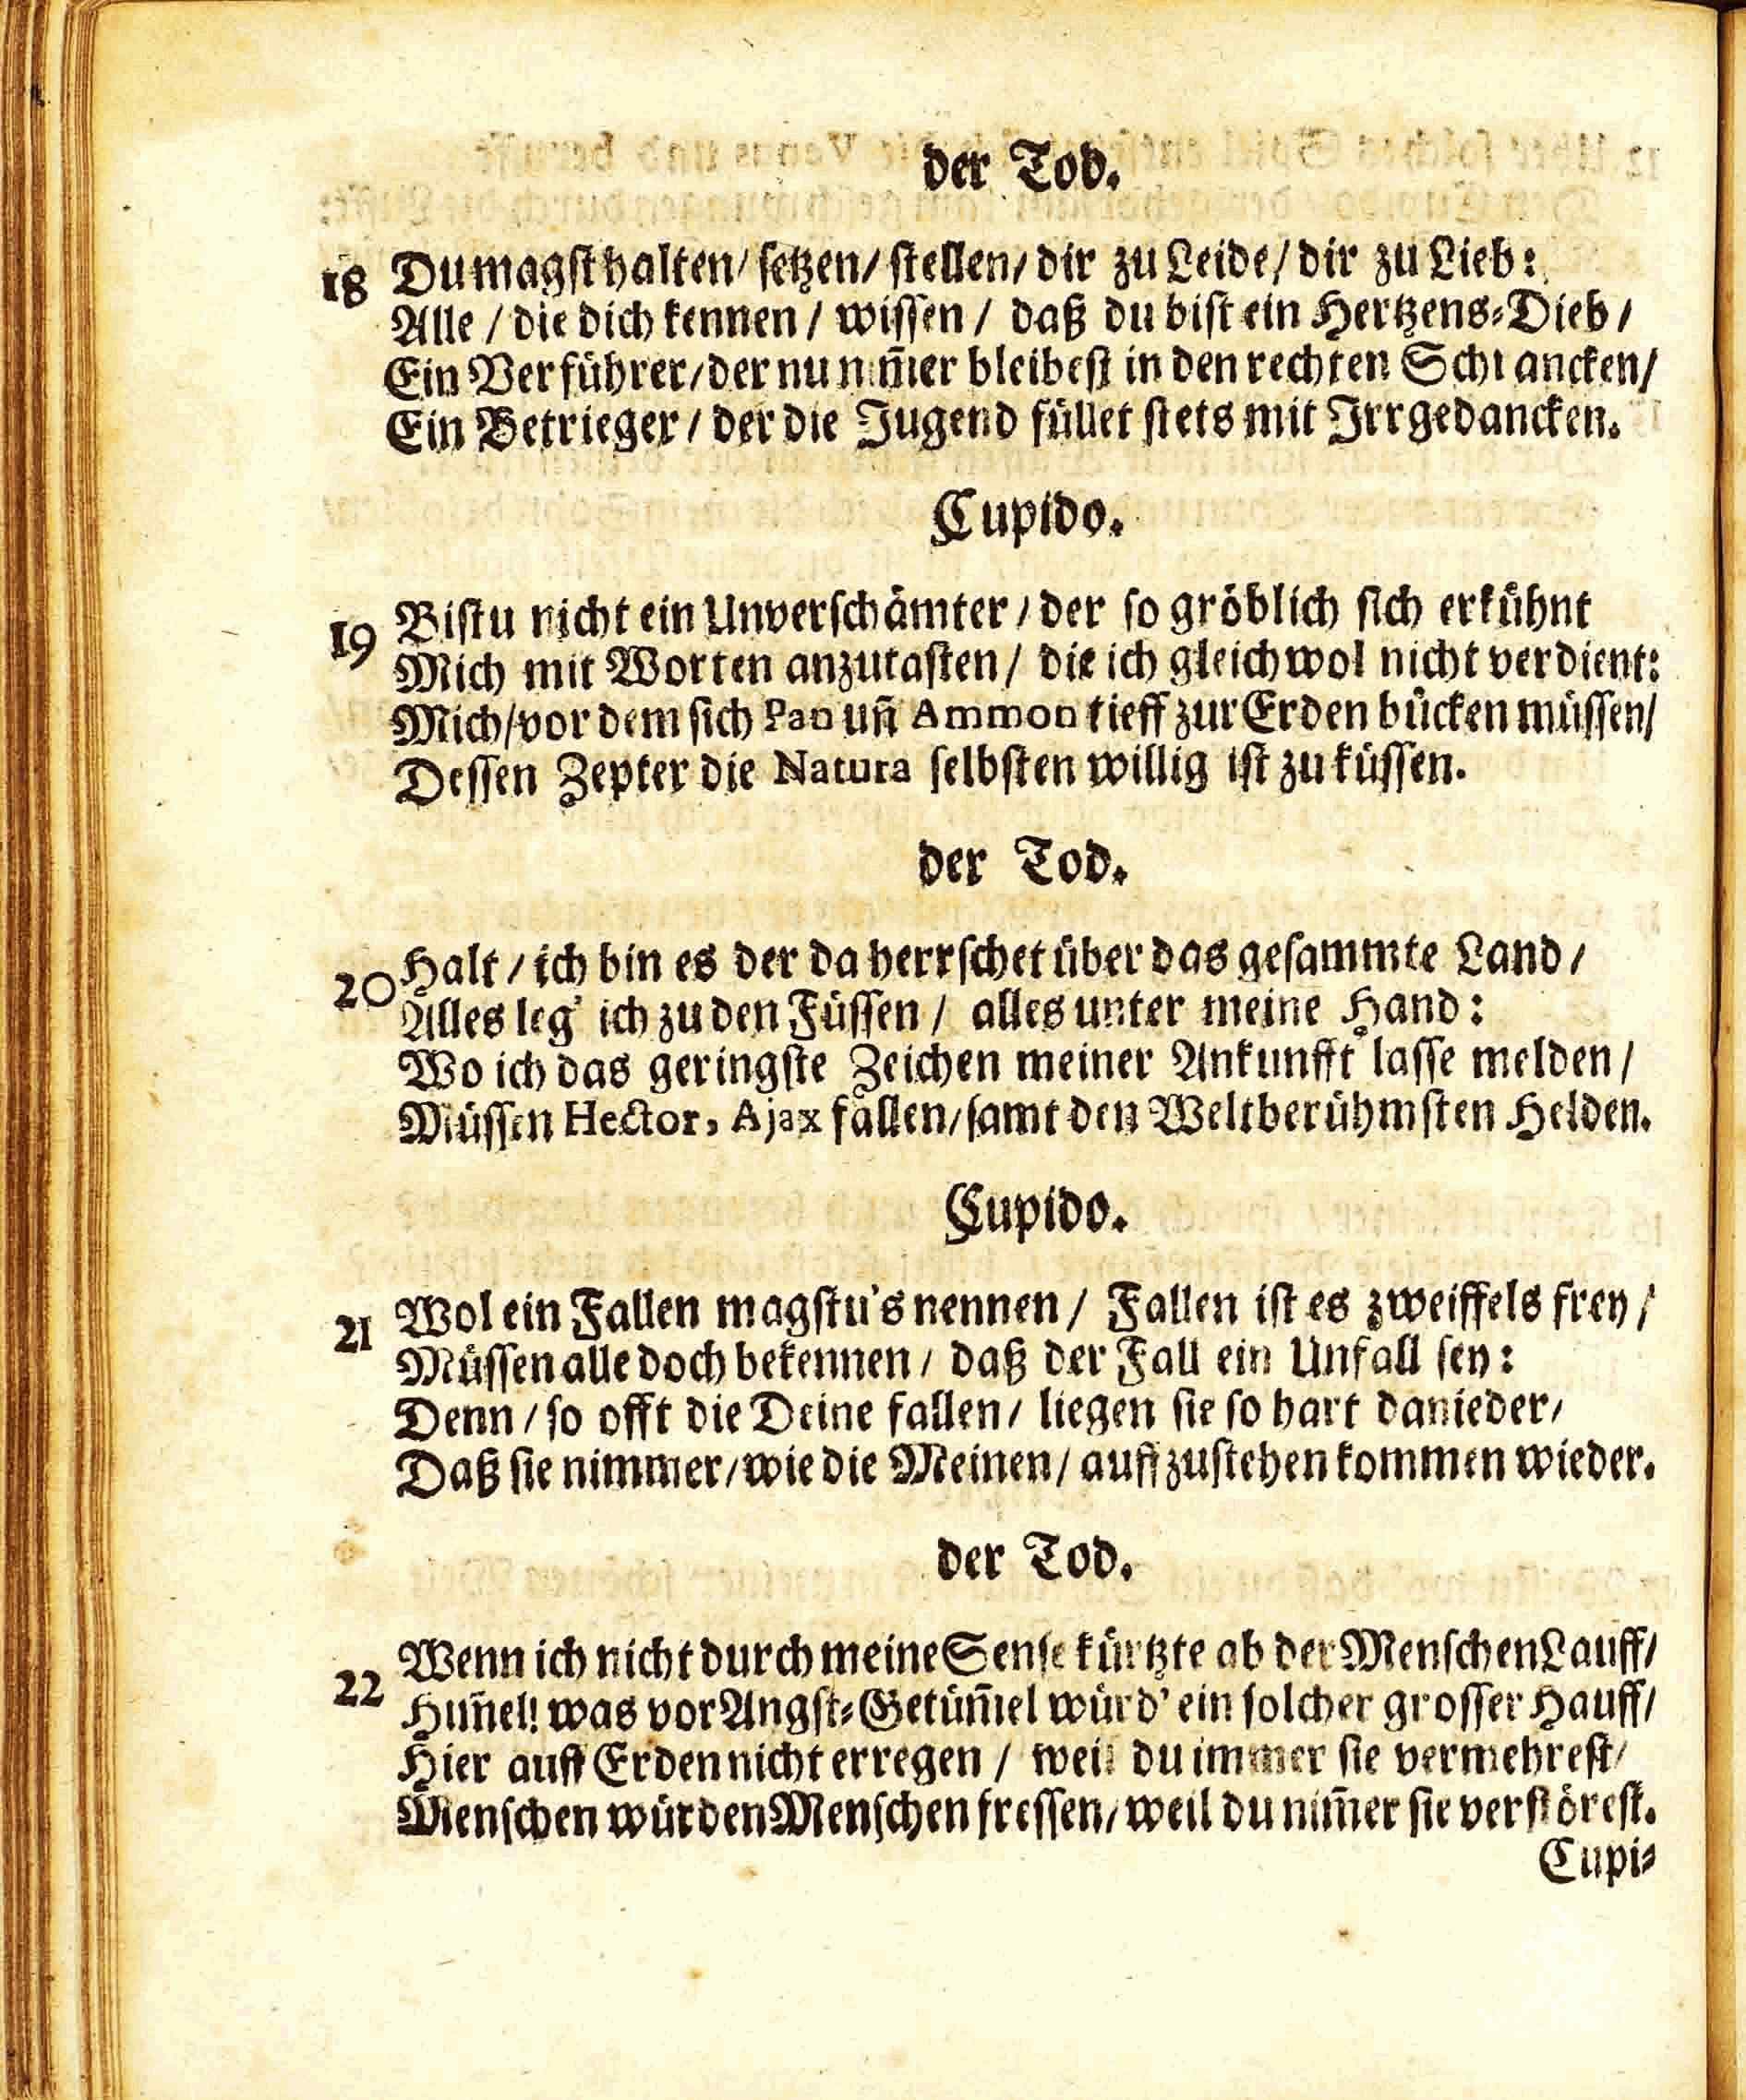 der Tod.
18 Du magst halten/ setzen/ stellen/ dir zu Leide/ dir zu Lieb:
Alle / die dich kennen / wissen / daß du bist ein Hertzens-Dieb /
Ein Verführer/ der nu nim̃er bleibest in den rechten Schrancken/
Ein Betrieger / der die Jugend füllet stets mit Irrgedancken.
Cupido.
19 Bistu nicht ein Unverschämter / der so gröblich sich erkühnt
Mich mit Worten anzutasten / die ich gleichwol nicht verdient:
Mich/ vor dem sich Pan uñ Ammon tieff zur Erden bücken müssen/
Dessen Zepter die Natura selbsten willig ist zu küssen.
der Tod.
20 Halt / ich bin es der da herrschet über das gesammte Land /
Alles leg' ich zu den Füssen / alles unter meine Hand:
Wo ich das geringste Zeichen meiner Ankunfft lasse melden /
Müssen Hector, Ajax fallen/ samt den Weltberühmsten Helden.
Cupido.
21 Wol ein Fallen magstu's nennen / Fallen ist es zweiffels frey /
Müssen alle doch bekennen / daß der Fall ein Unfall sey:
Denn / so offt die Deine fallen / liegen sie so hart danieder/
Daß sie nimmer/ wie die Meinen / auffzustehen kommen wieder.
der Tod.
22 Wenn ich nicht durch meine Sense kürtzte ab der Menschen Lauff/
Him̃el! was vor Angst-Getüm̃el würd' ein solcher grosser Hauff/
Hier auff Erden nicht erregen / weil du immer sie vermehrest/
Menschen würden Menschen fressen/ weil du nim̃er sie verstörest.
Cupi-